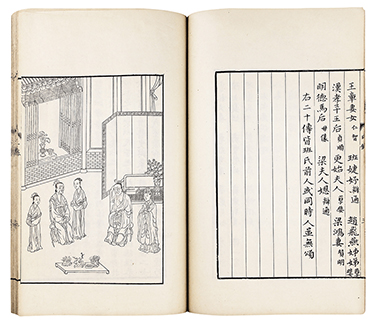 王章妻女 仁智 班婕妤 辯通 趙飛燕姊娣 孽嬖
漢孝平王后 更始夫人 孽嬖 梁鴻妻 賢明
明德馬后 母儀 梁夫人嫕 辯通
右二十傳皆班氏前人或同時人並無頌